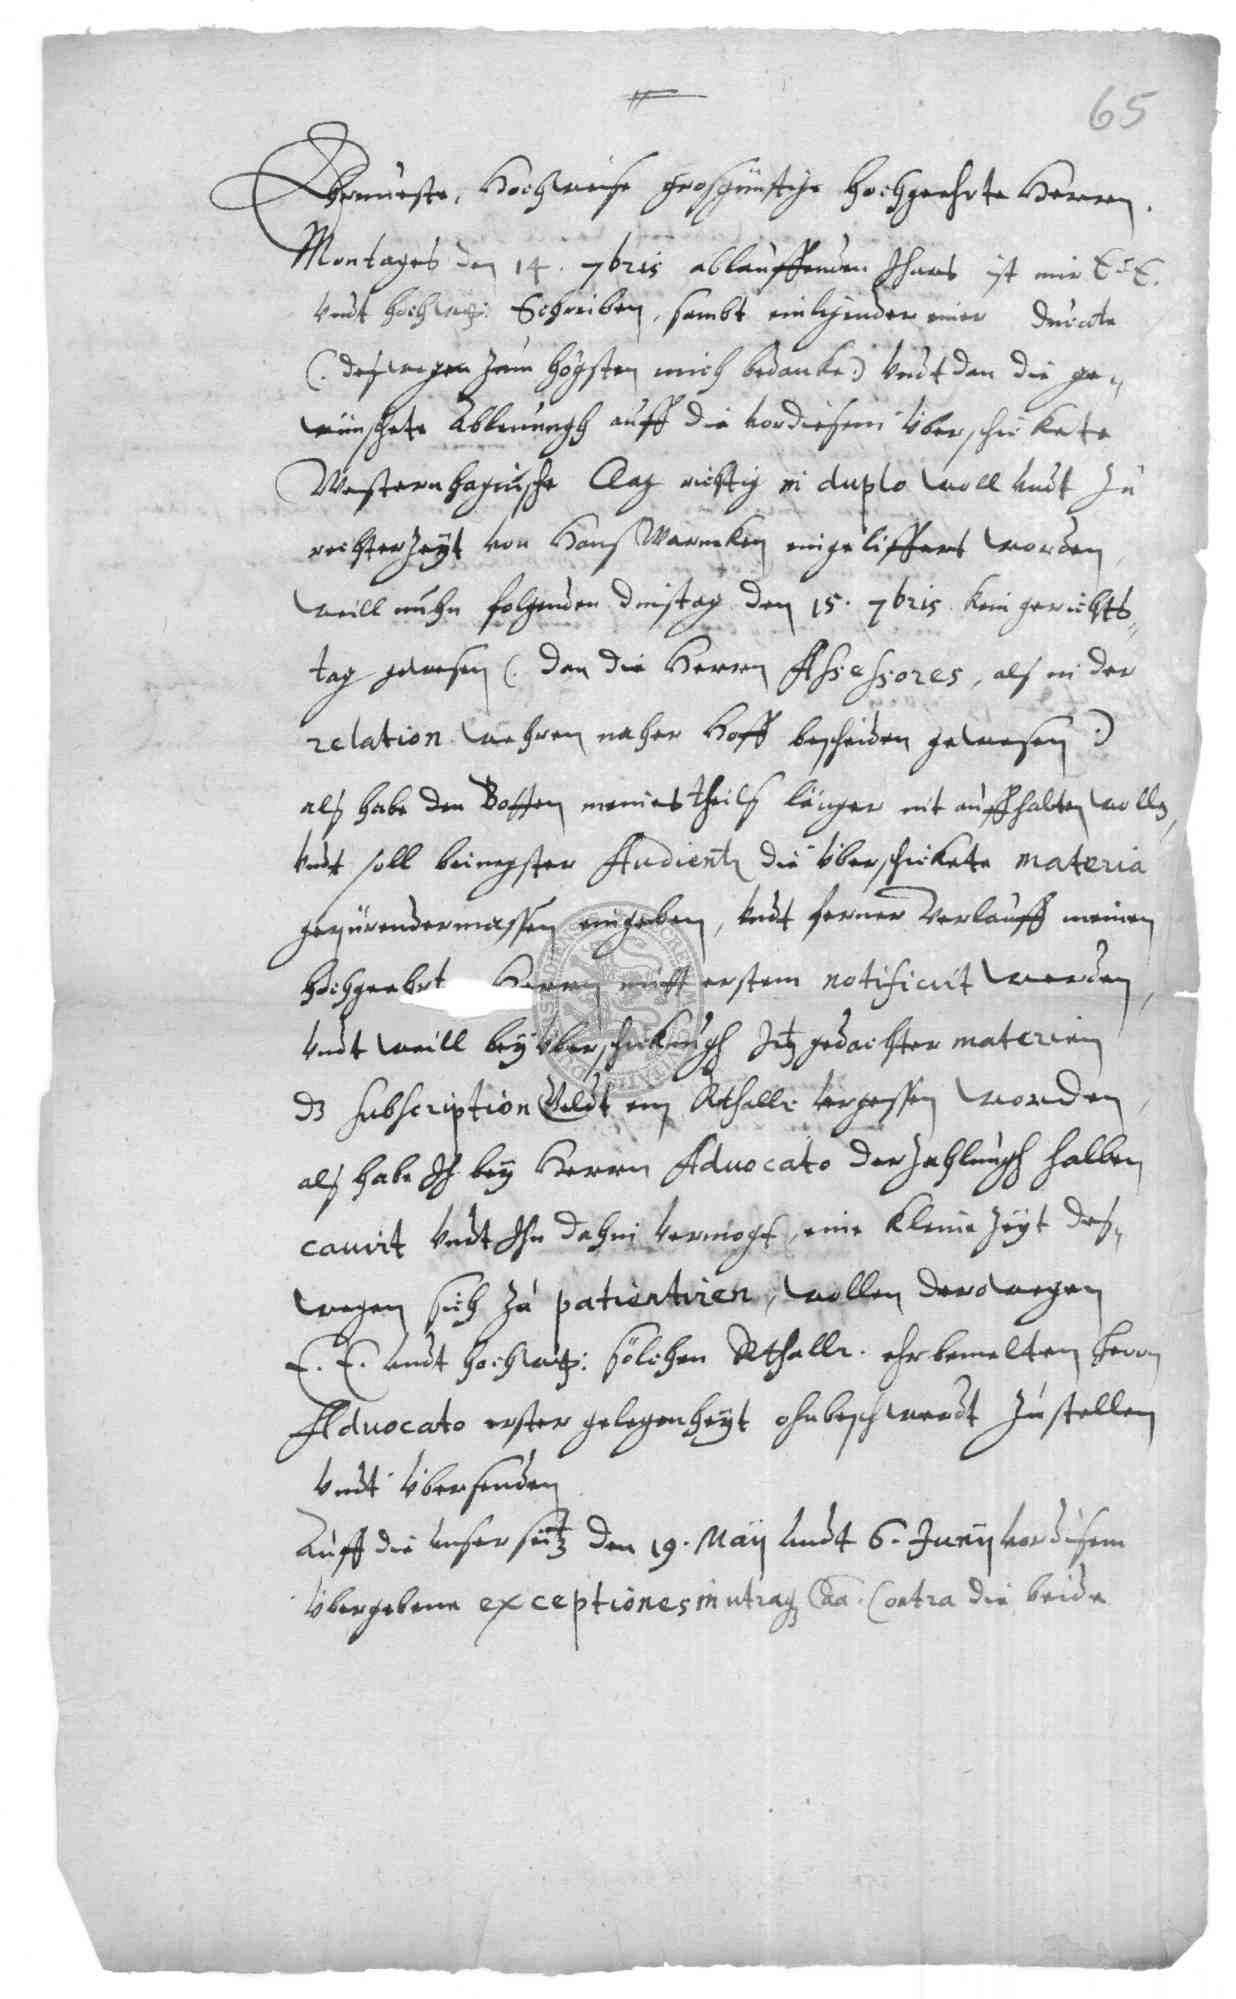 65
Ehrnueste, Hochweise großgünstige hochgeehrte Herren.
Montages den 14. 7bris ablauffenden Jhars ist mir E. E.
vndt hochw: Schreiben, sambt einliegender einer Ducate
(: deßwegen zum högsten mich bedanke :) vndt dan die ge-
wünschete Ablenungh auff die vor diesem überschickete
Westernhagische Clag richtig in duplo woll vndt zu
rechter zeyt von Hanß Warneken eingelieffert worden,
weill nuhn folgenden dinstag den 15. 7bris kein gerichts-
tag gewesen (: dan die Herrn Assessores, alß in der
relation wehren naher Hoff bescheiden gewesen :)
alß habe den Botten meines theilß länger nit auffhalten wollen,
vndt soll bei negster Audientz die überschickete materia
gepürendermassen eingeben, vndt ferner verlauff meinen
hochgeehrt Herrn mitt erstem notificirt werden,
vndt weill bey überschickungh Itz gedachter materien
dz subscription Geldt ein Rthallr vergessen worden,
alß habe Ich bey Herrn Aduocato der zahlungh halben
cauirt vndt Ihn dahin vermöcht, eine kleine zeyt deß-
wegen sich zu patientiren, wollen derowegen
E. E. vndt hochw: sölchen Rthallr. ehrbemelten Herrn
Aduocato erster gelegenheyt ohnbeschwerdt zustellen
vndt übersenden
Auff die vnserseitz den 19. Maij vndt 6. Junij vor diesem
übergebene exceptiones in utraq Caa. Contra die beide